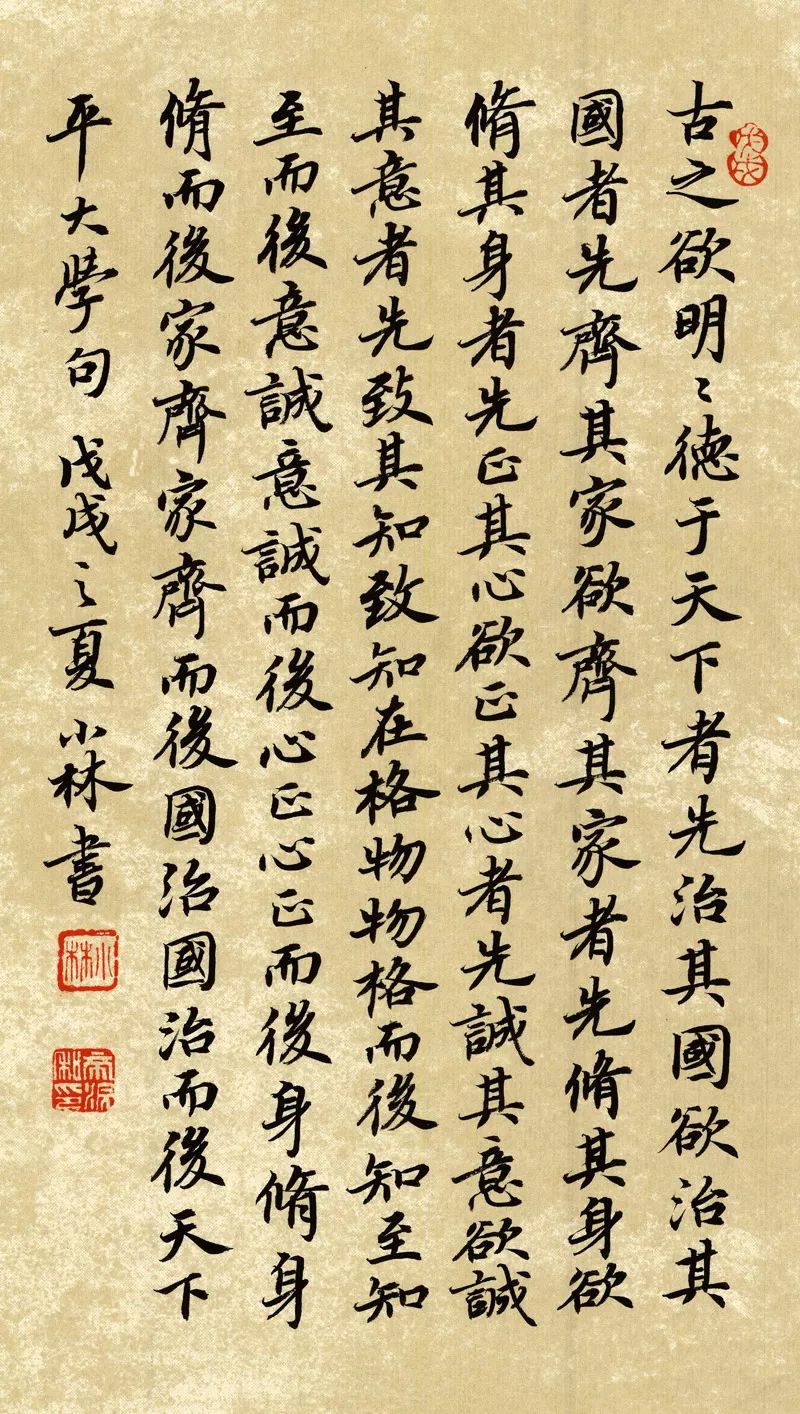 古之欲明〻德于天下者先治其國欲治其
國者先齊其家欲齊其家者先脩其身欲
脩其身者先正其心欲正其心者先誠其意欲誠
其意者先致其知致知在格物物格而後知至知
至而後意誠意誠而後心正心正而後身脩身
脩而後家齊家齊而後國治國治而後天下
平大學句 戊戌之夏 小林書
戊戌
小林